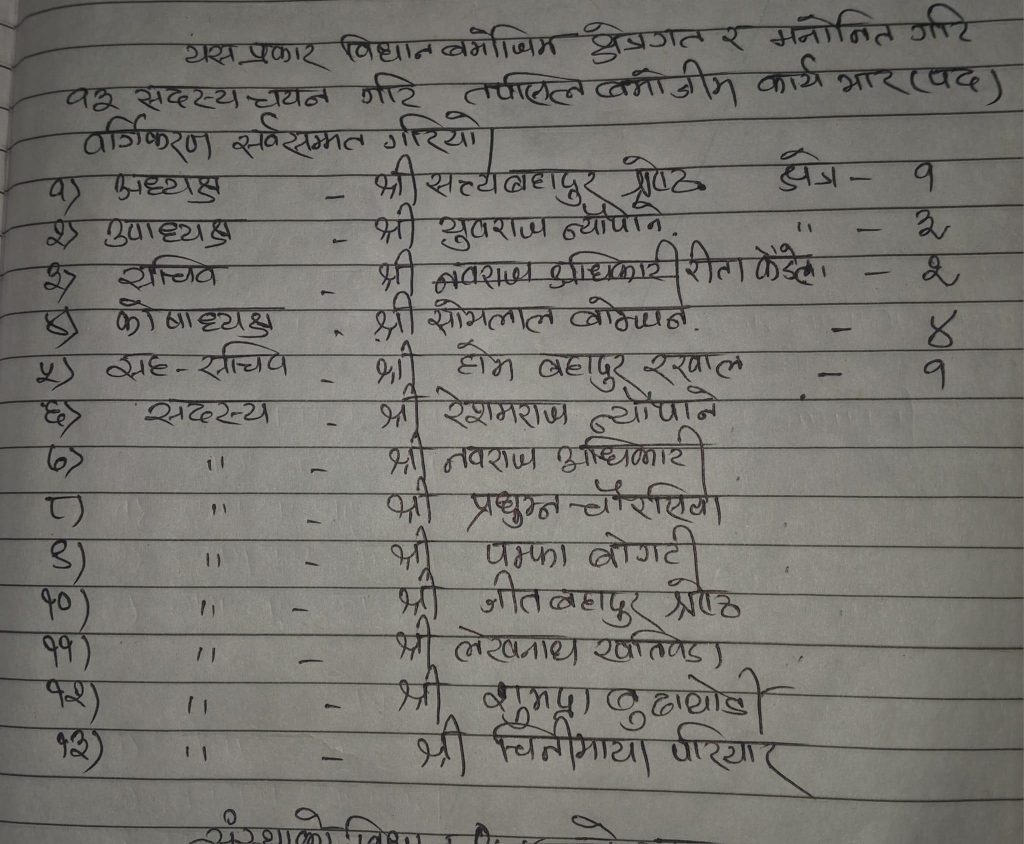 यस प्रकार विधान बमोजिम क्षेत्रगत र मनोनित गरि
१३ सदस्य चयन गरि तपसिल बमोजीम कार्य भार (पद)
वर्गिकरण सर्वसम्मत गरियो।
१) अध्यक्ष - श्री सत्यबहादुर श्रेष्ठ क्षेत्र - १
२) उपाध्यक्ष - श्री युवराज न्यौपाने. " - ३
३) सचिव - श्री नवराज अधिकारी रीता कँडेल - २
४) कोषाध्यक्ष - श्री सोमलाल बोम्जन. - ४
५) सह-सचिव - श्री होम बहादुर रखाल - १
६) सदस्य - श्री रेशमराज न्यौपाने
७) " - श्री नवराज अधिकारी
८) " - श्री प्रधुम्न चौरसिया
९) " - श्री पम्फा बोगटी
१०) " - श्री जीतबहादुर श्रेष्ठ
११) " - श्री लेखनाथ खतिवडा
१२) " - श्री शुभद्रा बुढाथोकी
१३) " - श्री चिनीमाया परियार
संस्थाको